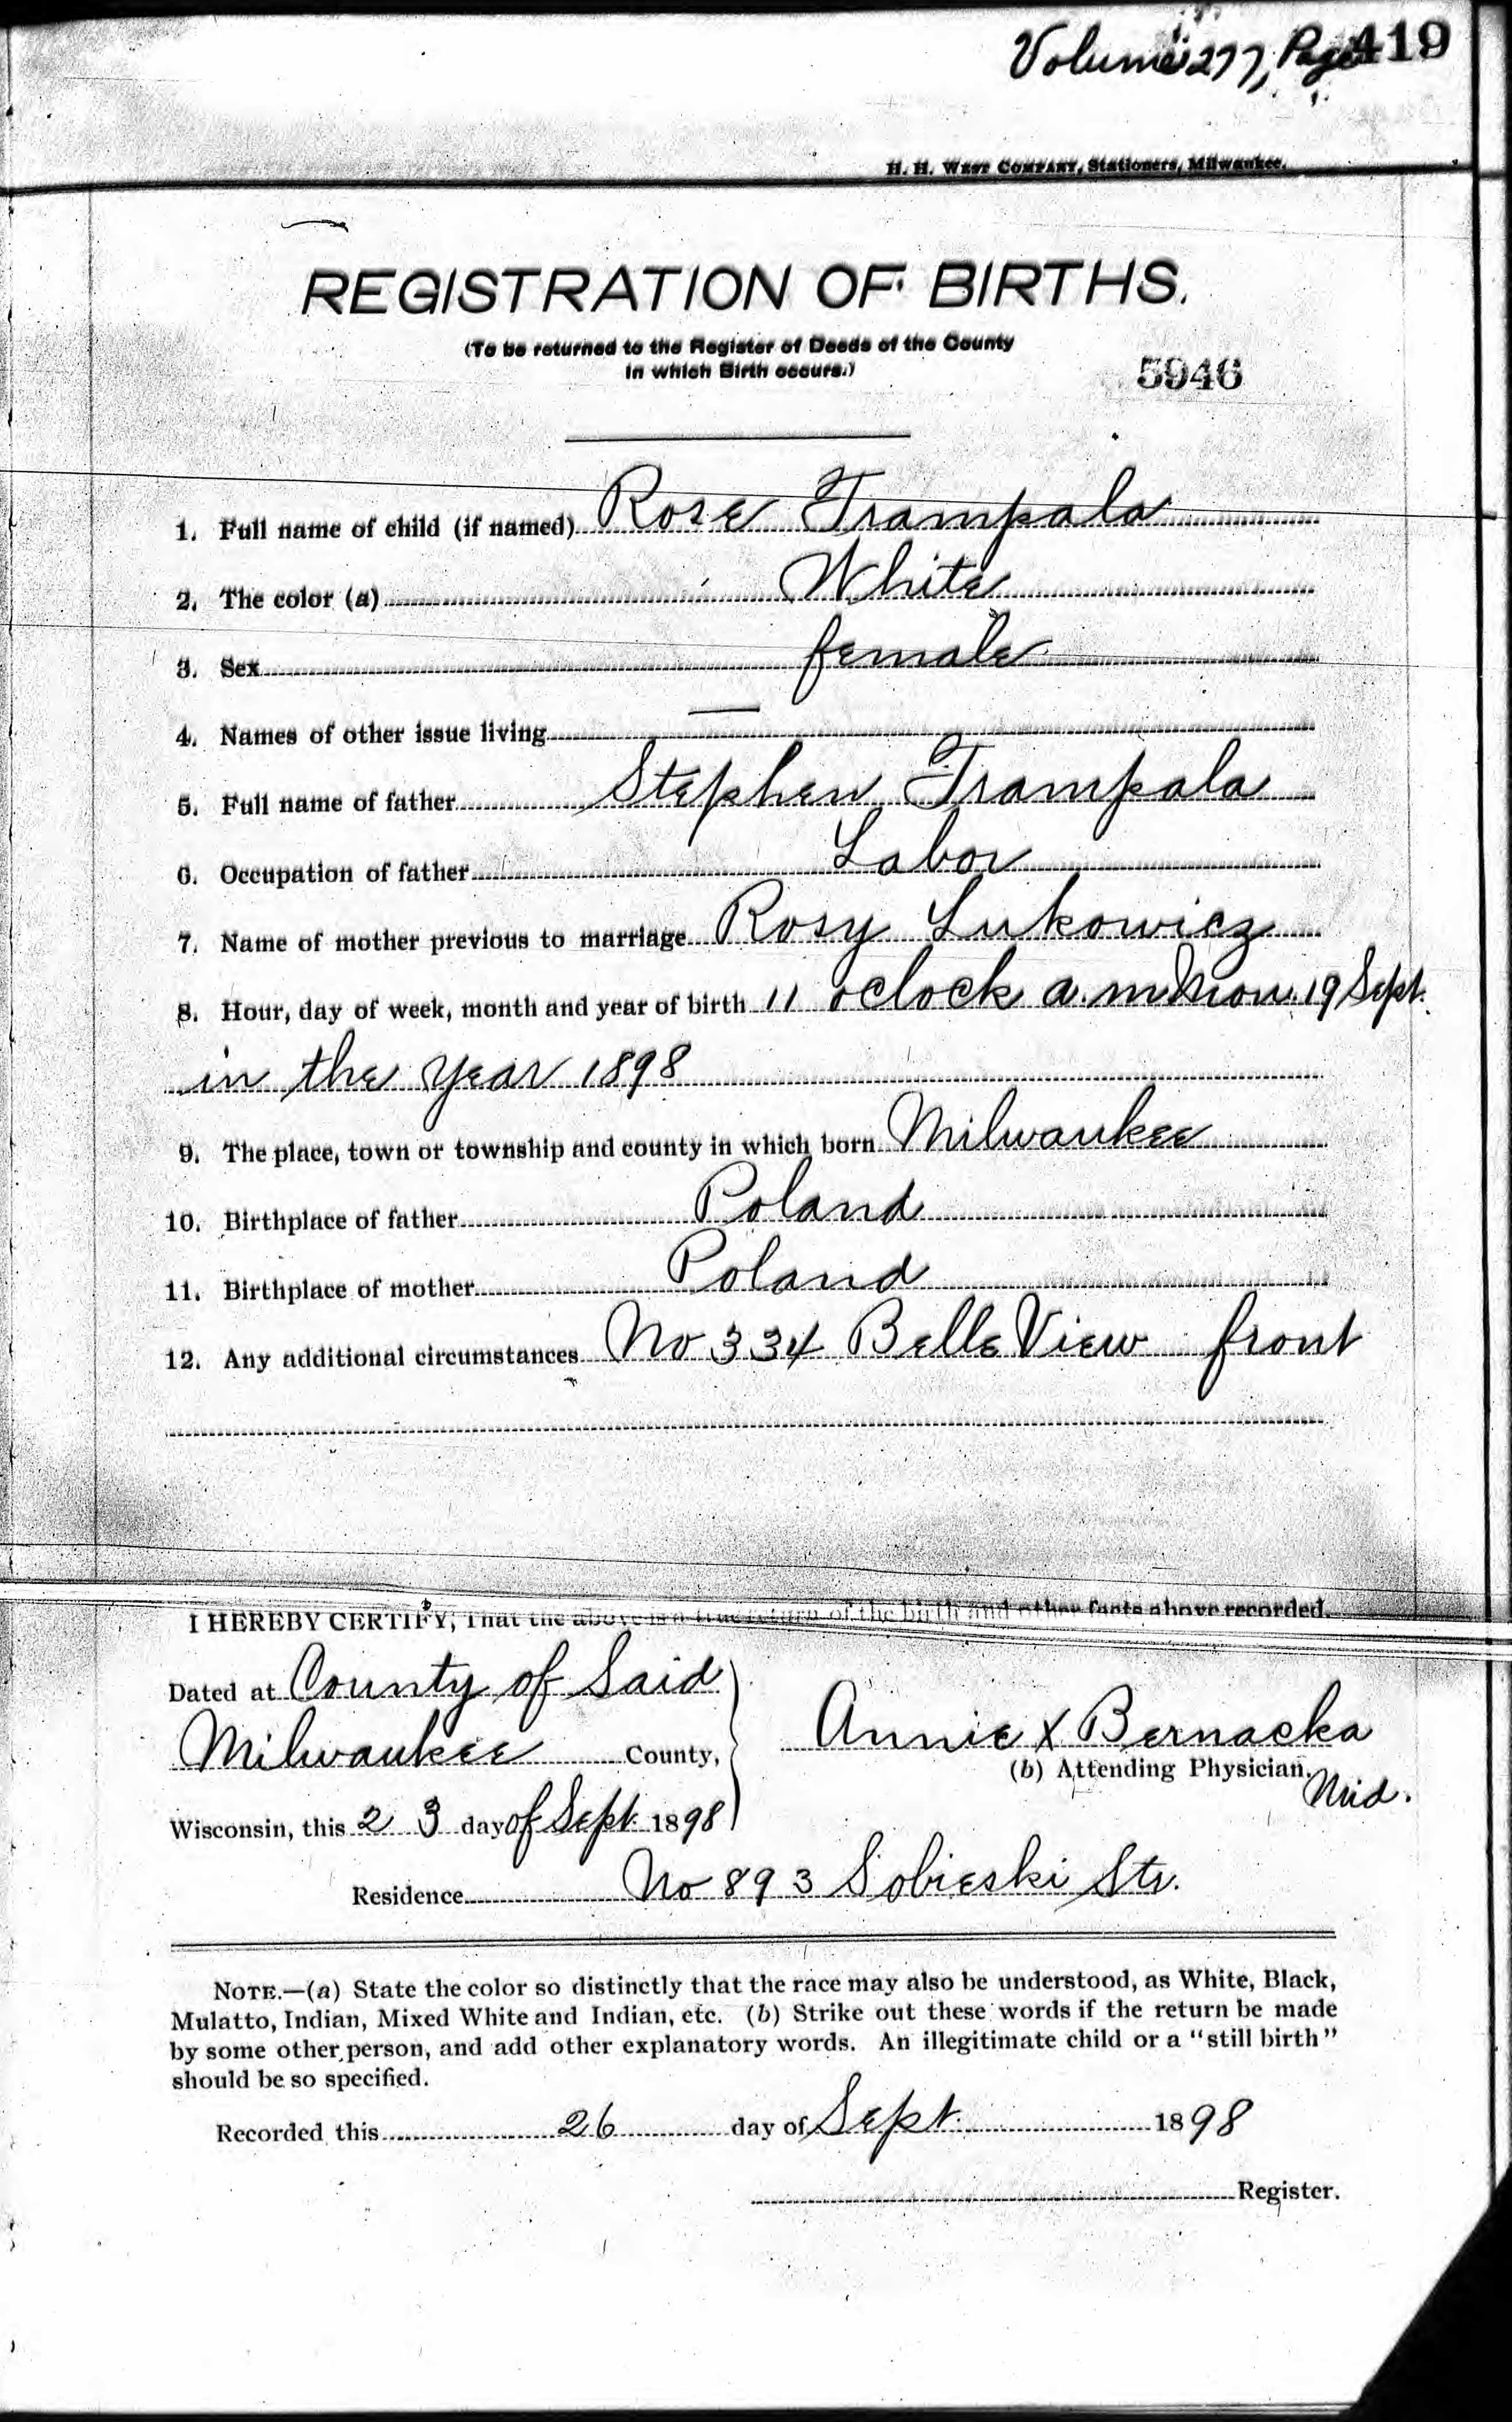 Volume 277, Page 419
H. H. WEST COMPANY, Stationers, Milwaukee.
REGISTRATION OF BIRTHS.
(To be returned to the Register of Deeds of the County
in which Birth occurs.)
5946
1. Full name of child (if named) Rose Trampala
2. The color (a) White
3. Sex female
4. Names of other issue living —
5. Full name of father Stephen Trampala
6. Occupation of father Labor
7. Name of mother previous to marriage Rosy Lukowicz
8. Hour, day of week, month and year of birth 11 oclock a.m Mon. 19 Sept.
in the year 1898
9. The place, town or township and county in which born Milwaukee
10. Birthplace of father Poland
11. Birthplace of mother Poland
12. Any additional circumstances No 334 Belle View front
I HEREBY CERTIFY, That the above is a true return of the birth and other facts above recorded.
Dated at County of Said
Milwaukee County,
Annie X Bernacka
(b) Attending Physician.
Mid.
Wisconsin, this 23 day of Sept. 1898
Residence No 893 Sobieski Str.
NOTE.—(a) State the color so distinctly that the race may also be understood, as White, Black,
Mulatto, Indian, Mixed White and Indian, etc. (b) Strike out these words if the return be made
by some other person, and add other explanatory words. An illegitimate child or a "still birth"
should be so specified.
Recorded this 26 day of Sept. 1898
Register.